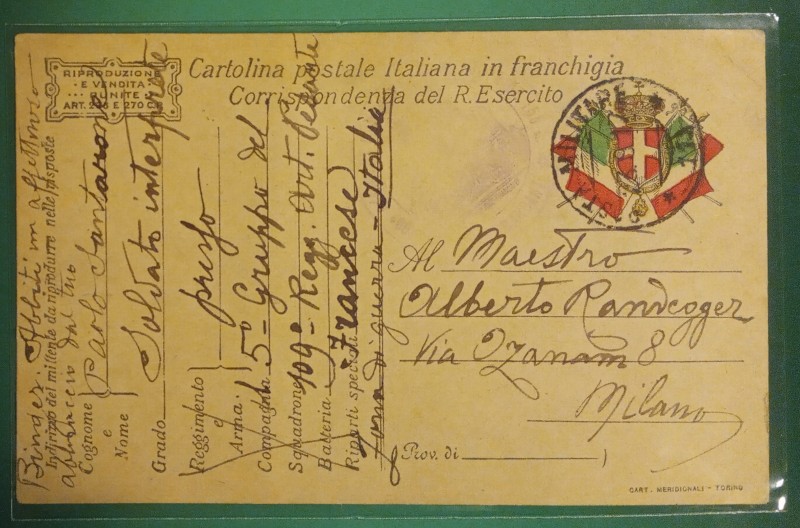 RIPRODUZIONE
E VENDITA
PUNITE
ART. E 270
Cartolina postale Italiana in franchigia
Corrispondenza del R. Esercito
POSTA MILITARE
Al Maestro
Alberto Randegger
Via Ozanam 8
Milano
Prov. di
CART. MERIDIONALI - TORINO
abbraccio dal tuo
Indirizzo del mittente da riprodurre nelle risposte
Cognome Paolo Santarone
e
Nome
Grado Soldato interprete
presso
Reggimento
e
Arma
Compagnia 5º Gruppo del
Squadrone 109º Regg. Art. Pesante
Batteria
Riparti speciali Francese
Zona di guerra - Italia